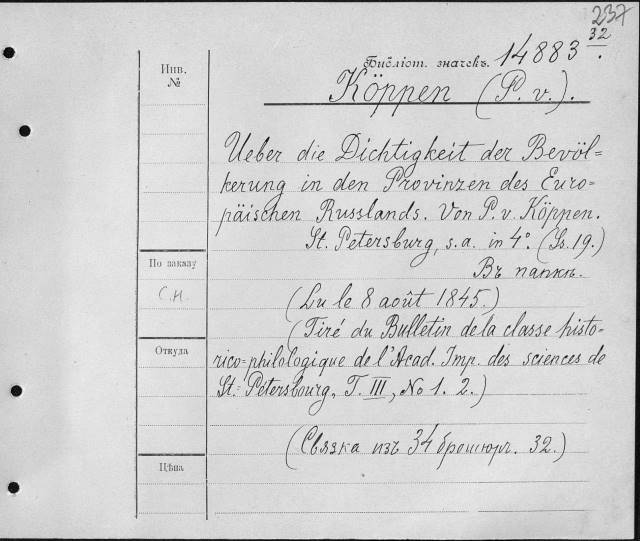 237
32
Инв.
№
Библіот. значекъ. 14883.
Köppen (P. v.).
Ueber die Dichtigkeit der Bevöl=
kerung in den Provinzen des Euro=
päischen Russlands. Von P. v. Köppen.
St. Petersburg, s.a. in 4°. (Ss. 19.)
Въ папкѣ.
По заказу
С.Н.
(Lu le 8 août 1845.)
(Tiré du Bulletin de la classe histo-
Откуда
rico=philologique de l'Acad. Imp. des sciences de
St.=Petersbourg, T. III, No 1. 2.)
(Связка изъ 34 брошюръ. 32.)
Цѣна